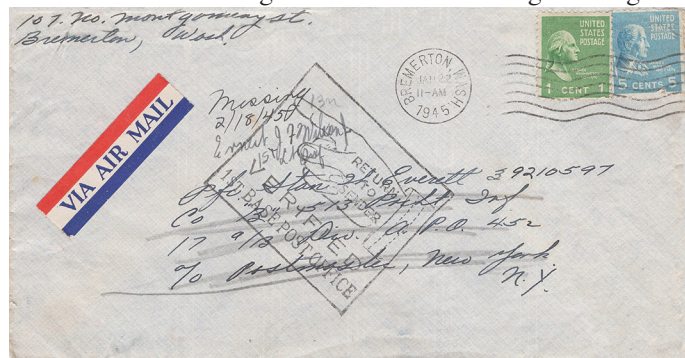 107 No. Montgomery st.
Bremerton, Wash.
UNITED STATES POSTAGE
1 CENT 1
UNITED STATES POSTAGE
5 CENTS 5
BREMERTON, WASH.
JAN 22
11-AM
1945
VIA AIR MAIL
Missing
2/18/45
Ernest J
1st Lt
RETURN
TO
SENDER
VERIFIED
1ST BASE POST OFFICE
Pfc. Stan Everett 39210597
Co 513 Prcht Inf
17 a/B Div. A.P.O. 452
c/o Postmaster, New York
N.Y.